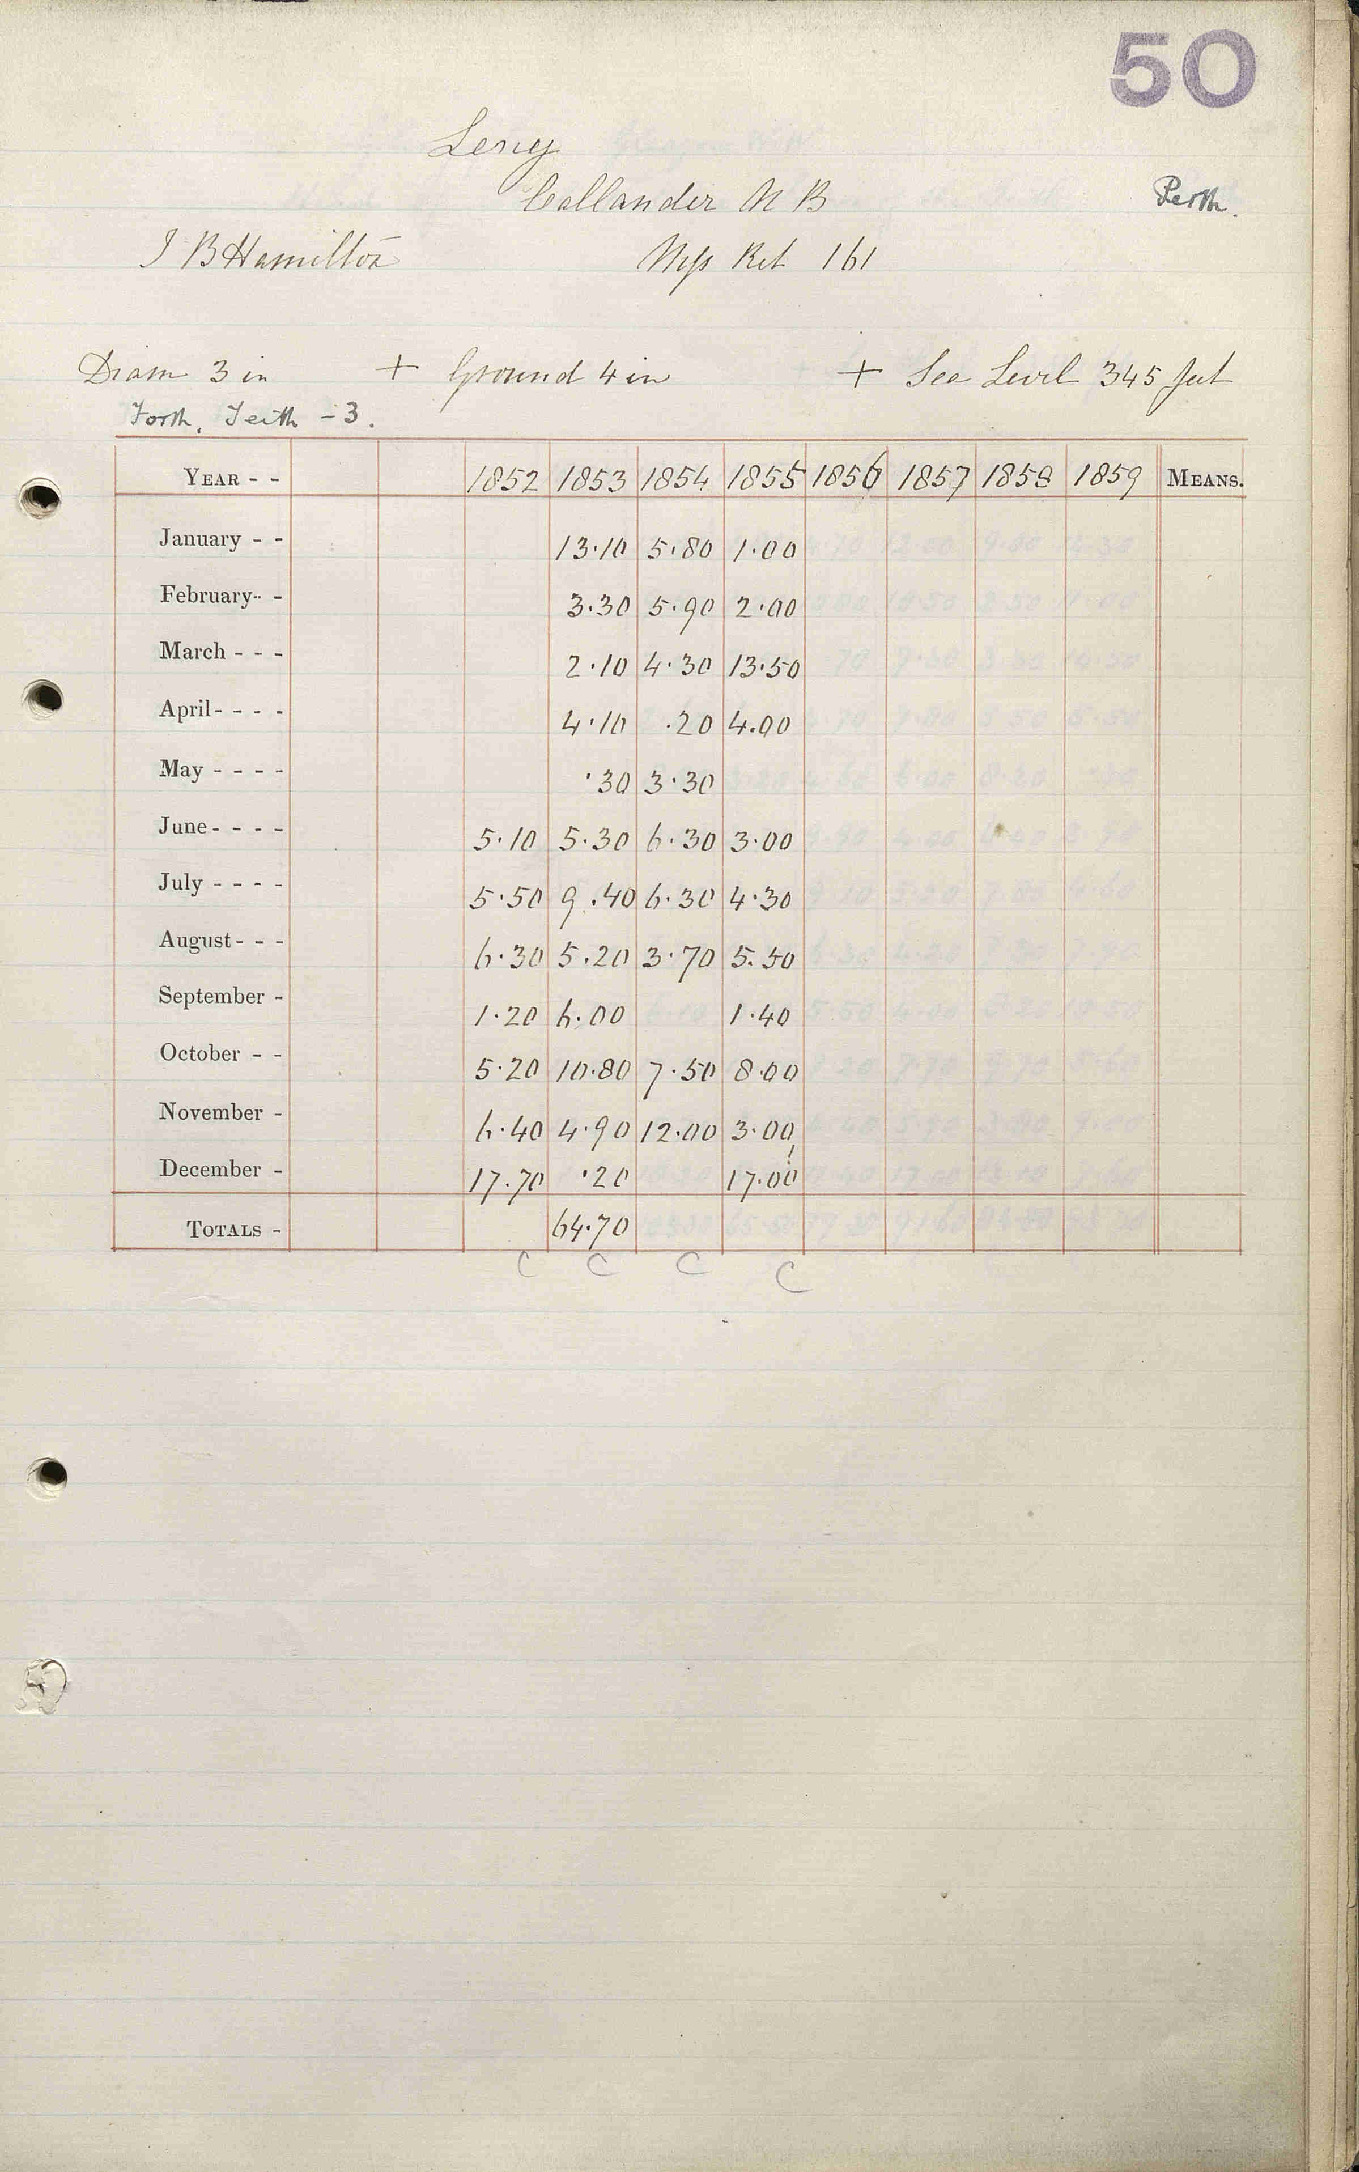 50
Leny
Callander N B
Perth.
J B Hamilton
Mss Ret 161
Diam 3 in + Ground 4 in + Sea Level 345 feet
Forth, Teith - 3.
YEAR - - 1852 1853 1854 1855 1856 1857 1858 1859 MEANS.
January - - 13.10 5.80 1.00
February - - 3.30 5.90 2.00
March - - - 2.10 4.30 13.50
April - - - - 4.10 .20 4.00
May - - - - .30 3.30
June - - - - 5.10 5.30 6.30 3.00
July - - - - 5.50 9.40 6.30 4.30
August - - - 6.30 5.20 3.70 5.50
September - 1.20 6.00 1.40
October - - 5.20 10.80 7.50 8.00
November - 6.40 4.90 12.00 3.00
December - 17.70 .20 17.00
TOTALS - 64.70
C C C C